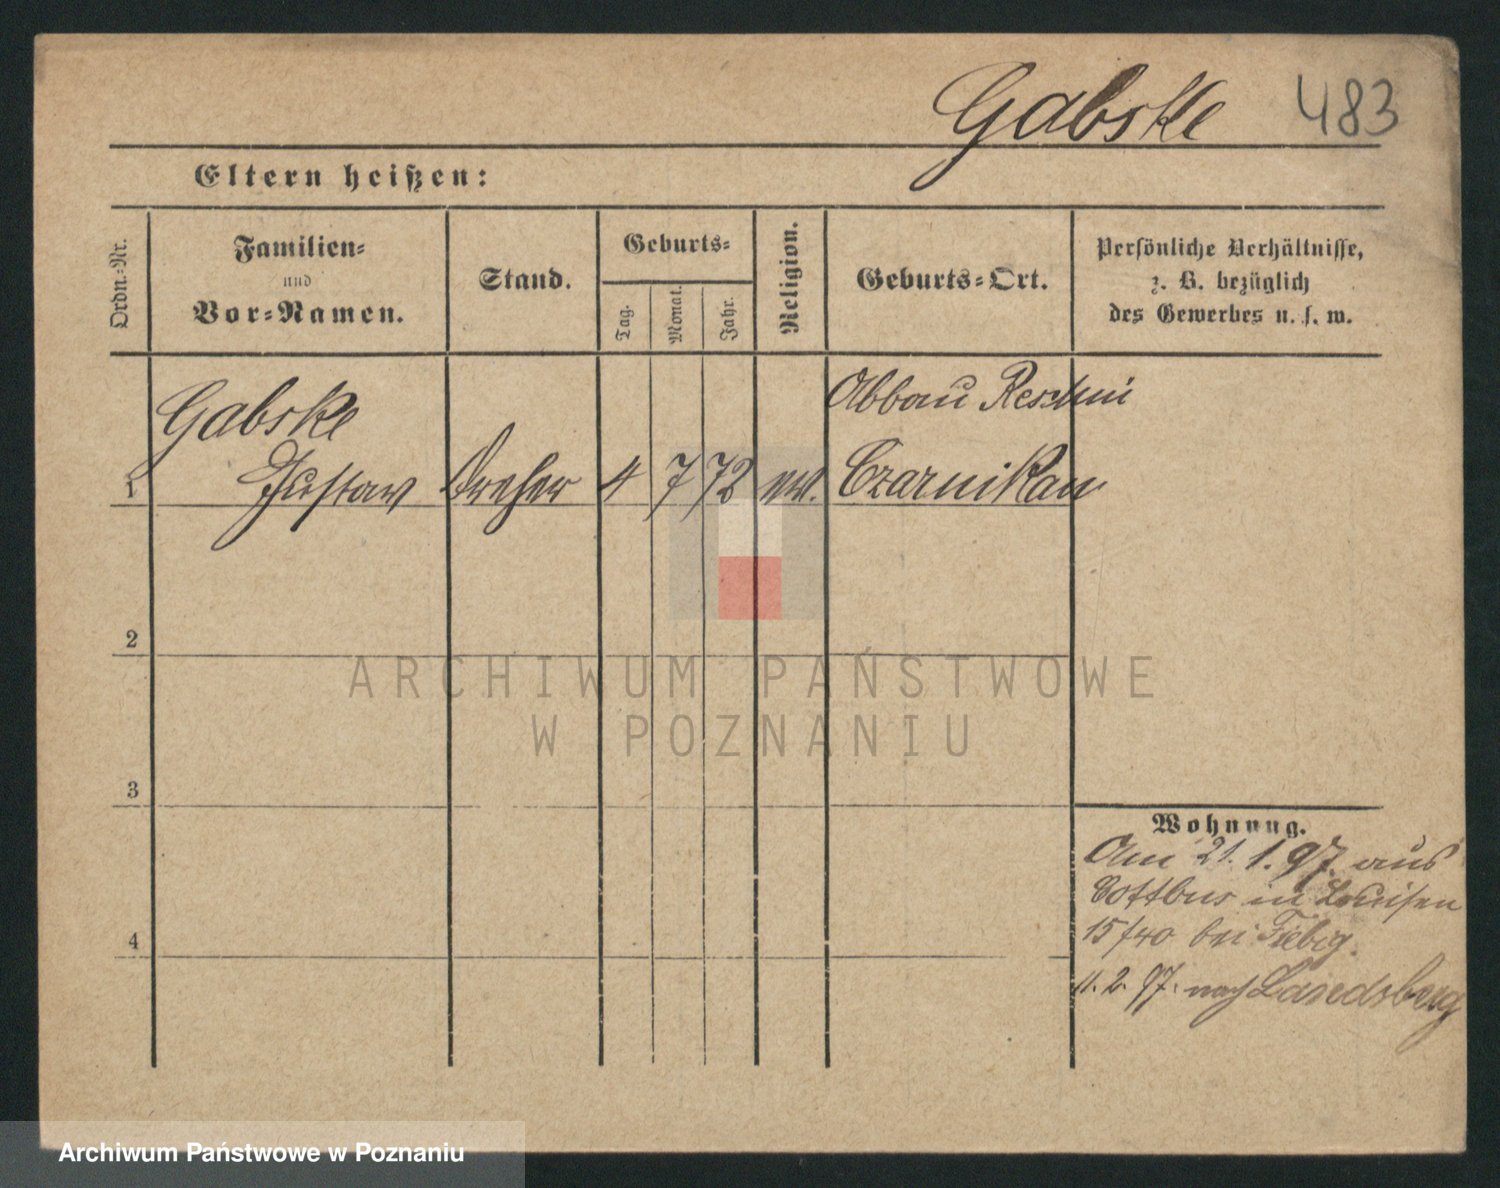 Gabske 483
Eltern heißen:
Ordn.=Nr.
Familien=
und
Vor=Namen.
Stand.
Geburts=
Tag.
Monat.
Jahr.
Religion.
Geburts=Ort.
Persönliche Verhältnisse,
z. B. bezüglich
des Gewerbes u. s. w.
Gabske
Abbau
1 Gustav Dreher 4 7 72 ev. Czarnikau
2
3
4
Wohnung.
Am 21.1.97. aus
Cottbus in Louisen
15/40 bei Fiebig.
11.2.97. nach Landsberg
ARCHIWUM PAŃSTWOWE
W POZNANIU
Archiwum Państwowe w Poznaniu